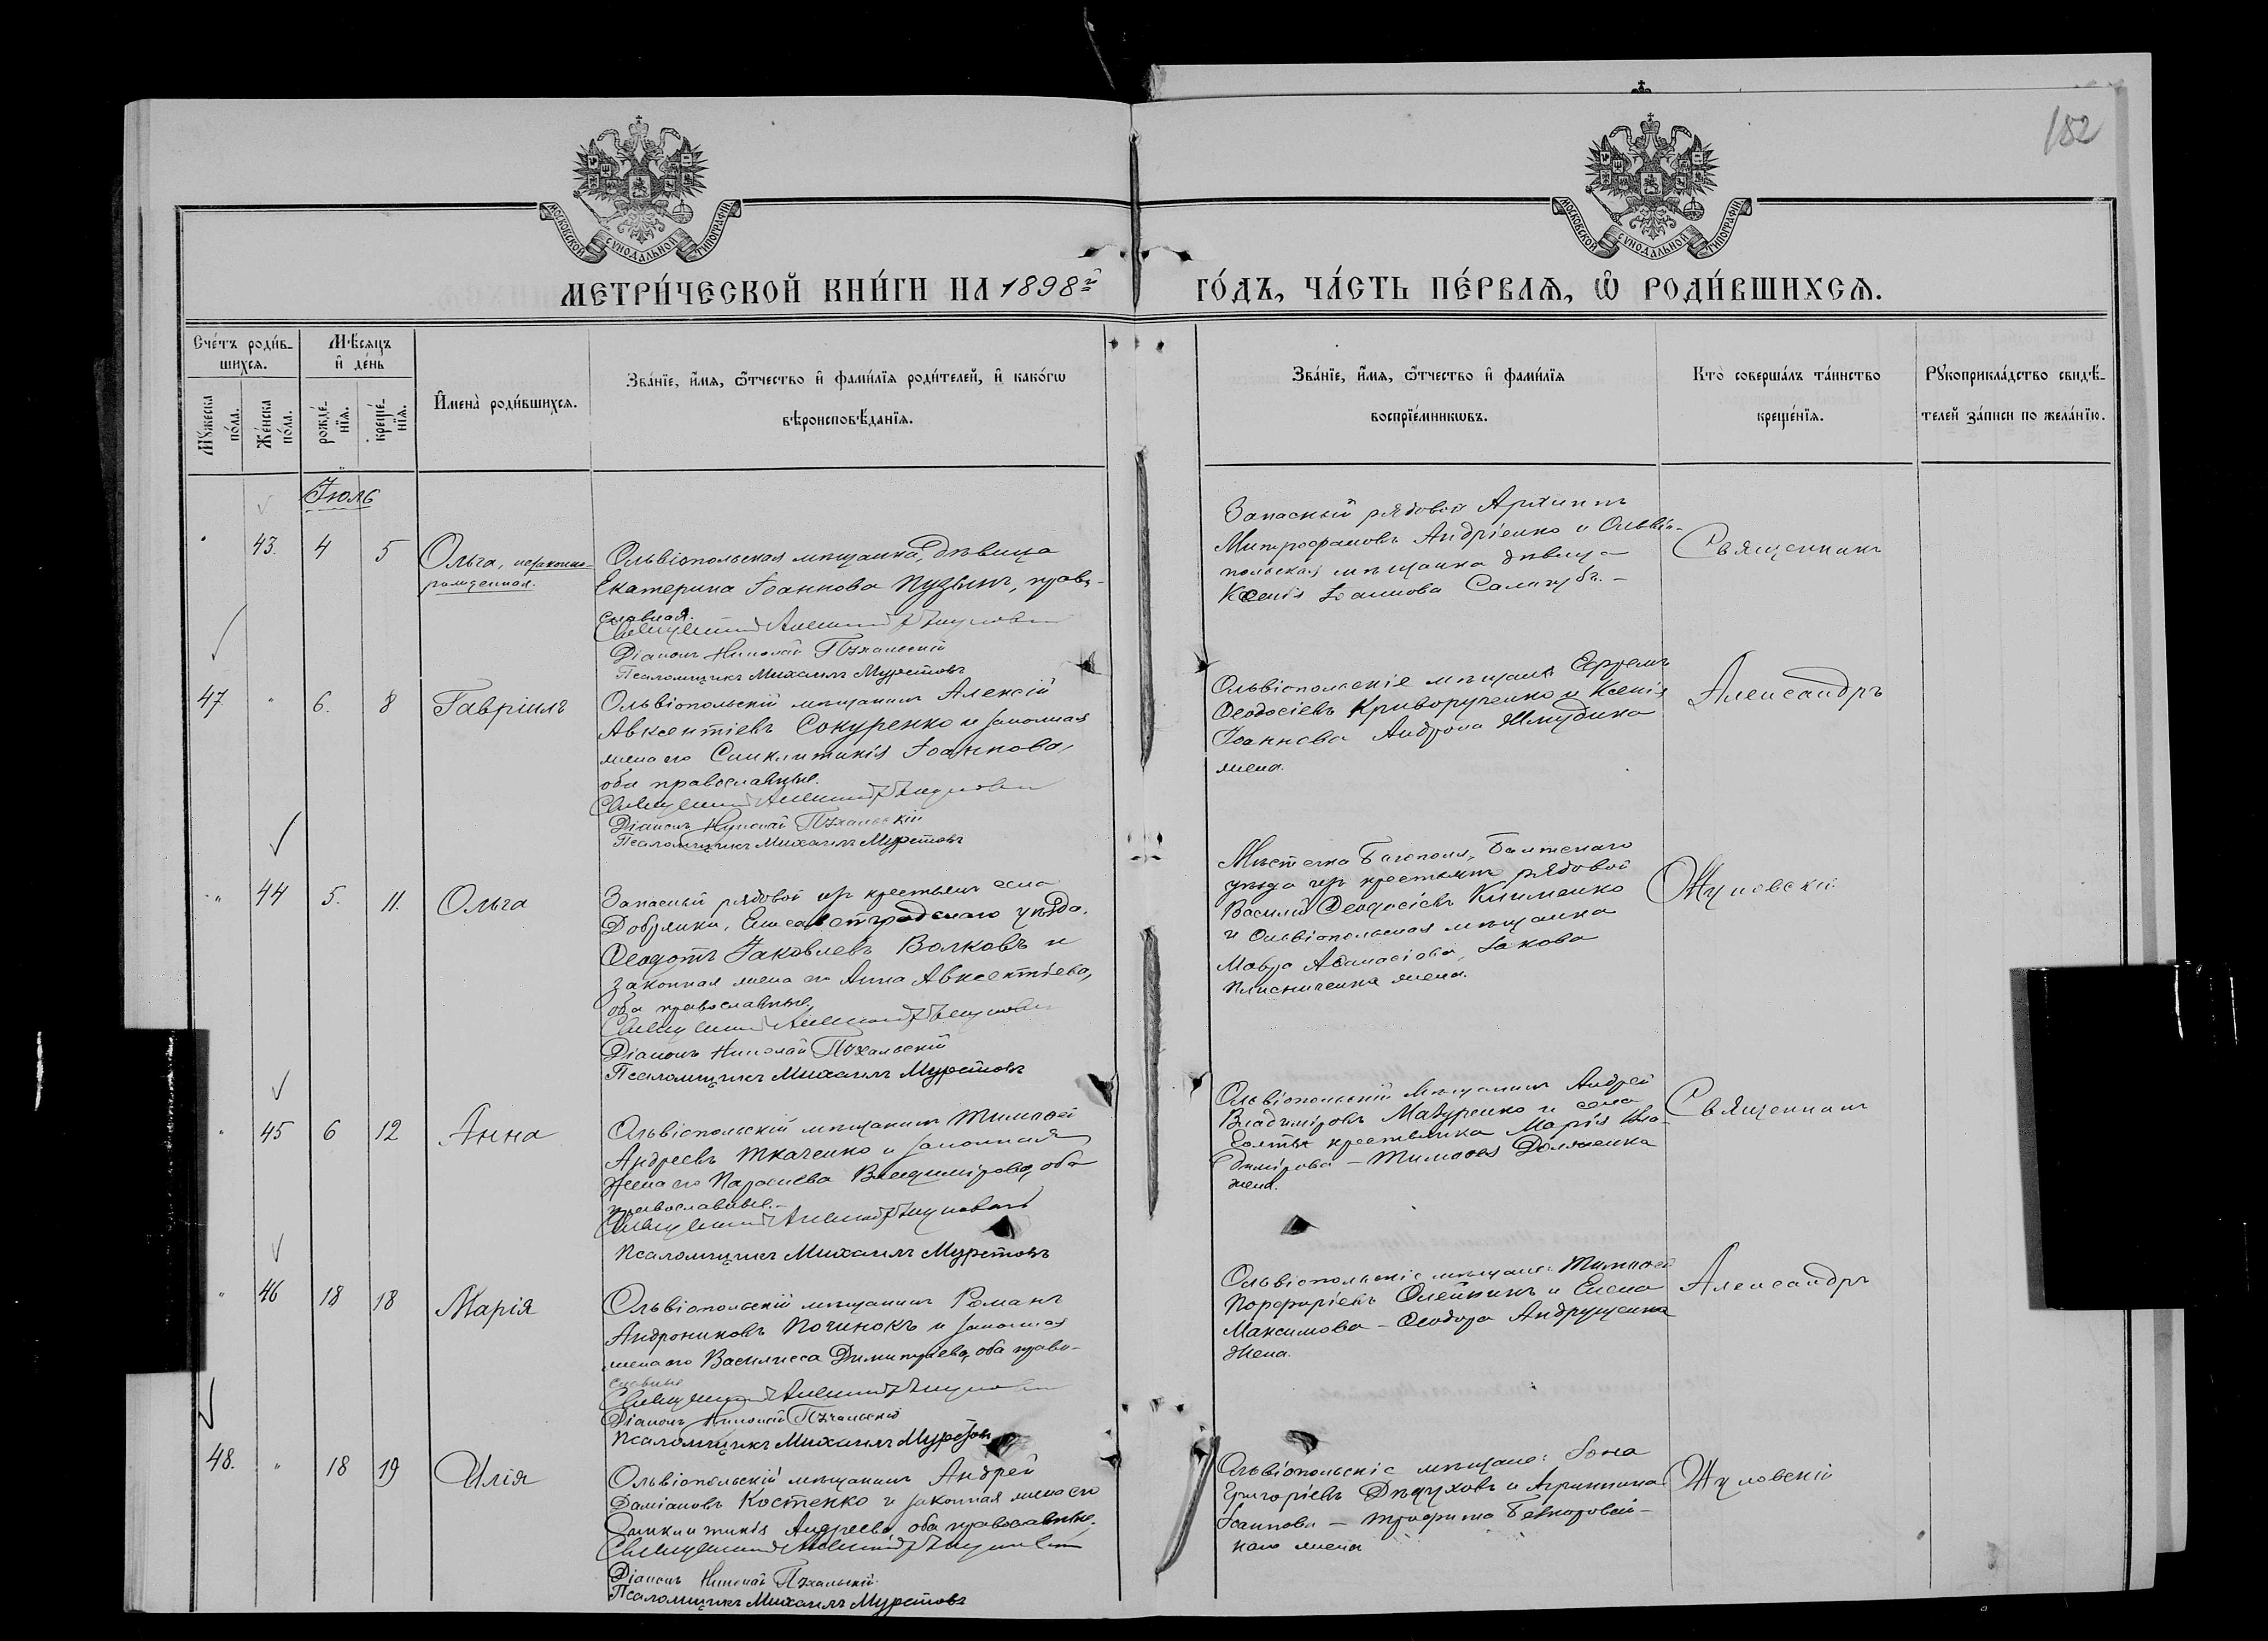 182
МОСКОВСКОЙ СУНОДАЛЬНОЙ ТИПОГРАФІИ
МОСКОВСКОЙ СУНОДАЛЬНОЙ ТИПОГРАФІИ
МЕТРИ́ЧЕСКОЙ КНИ́ГИ НА 1898й ГО́ДЪ, ЧА́СТЬ ПЕ́РВАѦ, Ѡ РОДИ́ВШИХСѦ.
Сче́тъ роди́в-
шихся.
Мꙋ́жеска по́ла.
Же́нска по́ла.
Мѣ́сяцъ
и де́нь
рожде́-
нїя.
креще́-
нїя.
Имена̀ роди́вшихся.
Зва́нїе, и́мя, ѻ́тчество и фами́лїя роди́телей, и како́гѡ
вѣроисповѣ́данїя.
Зва́нїе, и́мя, ѻ́тчество и фами́лїя
воспрїе́мникѡвъ.
Кто̀ соверша́лъ та́инство
креще́нїя.
Рꙋкоприкла́дство свидѣ́-
телей за́писи по жела́нїю.
Іюль
" 43. 4 5
Ольга, незаконно-
рожденная.
Ольвіопольская мѣщанка, дѣвица
Екатерина Іоаннова Пузынъ, право-
славная.
Священникъ Александръ
Діаконъ Николай Пухальскій
Псаломщикъ Михаилъ Муретовъ
Запасный рядовой Архиппъ
Митрофановъ Андріенко и Ольвіо-
польская мѣщанка дѣвица
Ксенія Іоаннова
Священникъ
47. " 6. 8
Гавріилъ
Ольвіопольскій мѣщанинъ Алексій
Авксентіевъ Сокуренко и законная
жена его Синклитикія Іоаннова,
оба православные.
Священникъ Александръ
Діаконъ Николай Пухальскій
Псаломщикъ Михаилъ Муретовъ
Ольвіопольскіе мѣщане: Ефремъ
Ѳеодосіевъ Криворученко и Ксенія
Іоаннова
жена.
Александръ
" 44 5. 11.
Ольга
Запасный рядовой изъ крестьянъ села
Добрянки, Елисаветградскаго уѣзда.
Ѳеодотъ Іаковлевъ Волковъ и
законная жена его Анна Авксентіева,
оба православные.
Священникъ Александръ
Діаконъ Николай Пухальскій
Псаломщикъ Михаилъ Муретовъ
Мѣстечка Богополя, Балтскаго
уѣзда изъ крестьянъ рядовой
Василій Ѳеодосіевъ Клименко
и Ольвіопольская мѣщанка
Мавра Аѳанасіева, Іакова
жена.
" 45 6 12
Анна
Ольвіопольскій мѣщанинъ Тимоѳей
Андреевъ Ткаченко и законная
жена его Параскева Владимірова, оба
православные.
Священникъ Александръ
Псаломщикъ Михаилъ Муретовъ
Ольвіопольскій мѣщанинъ Андрей
Владиміровъ Мазуренко и села
крестьянка Марія Вла-
димірова — Тимоѳея
жена.
Священникъ
" 46 18 18
Марія
Ольвіопольскій мѣщанинъ Романъ
Андрониковъ Починокъ и законная
жена его Василисса Димитріева, оба право-
славные
Священникъ Александръ
Діаконъ Николай Пухальскій
Псаломщикъ Михаилъ Муретовъ
Ольвіопольскіе мѣщане: Тимоѳей
Порфиріевъ Олейникъ и Елена
Максимова — Ѳеодора Андрущенка
жена.
Александръ
48. " 18 19
Илія
Ольвіопольскій мѣщанинъ Андрей
Даміановъ Костенко и законная жена его
Синклитикія Андреева, оба православные.
Священникъ Александръ
Діаконъ Николай Пухальскій
Псаломщикъ Михаилъ Муретовъ
Ольвіопольскіе мѣщане: Іона
Григоріевъ Дѣдуховъ и Агриппина
Іоаннова — Трифона
жена